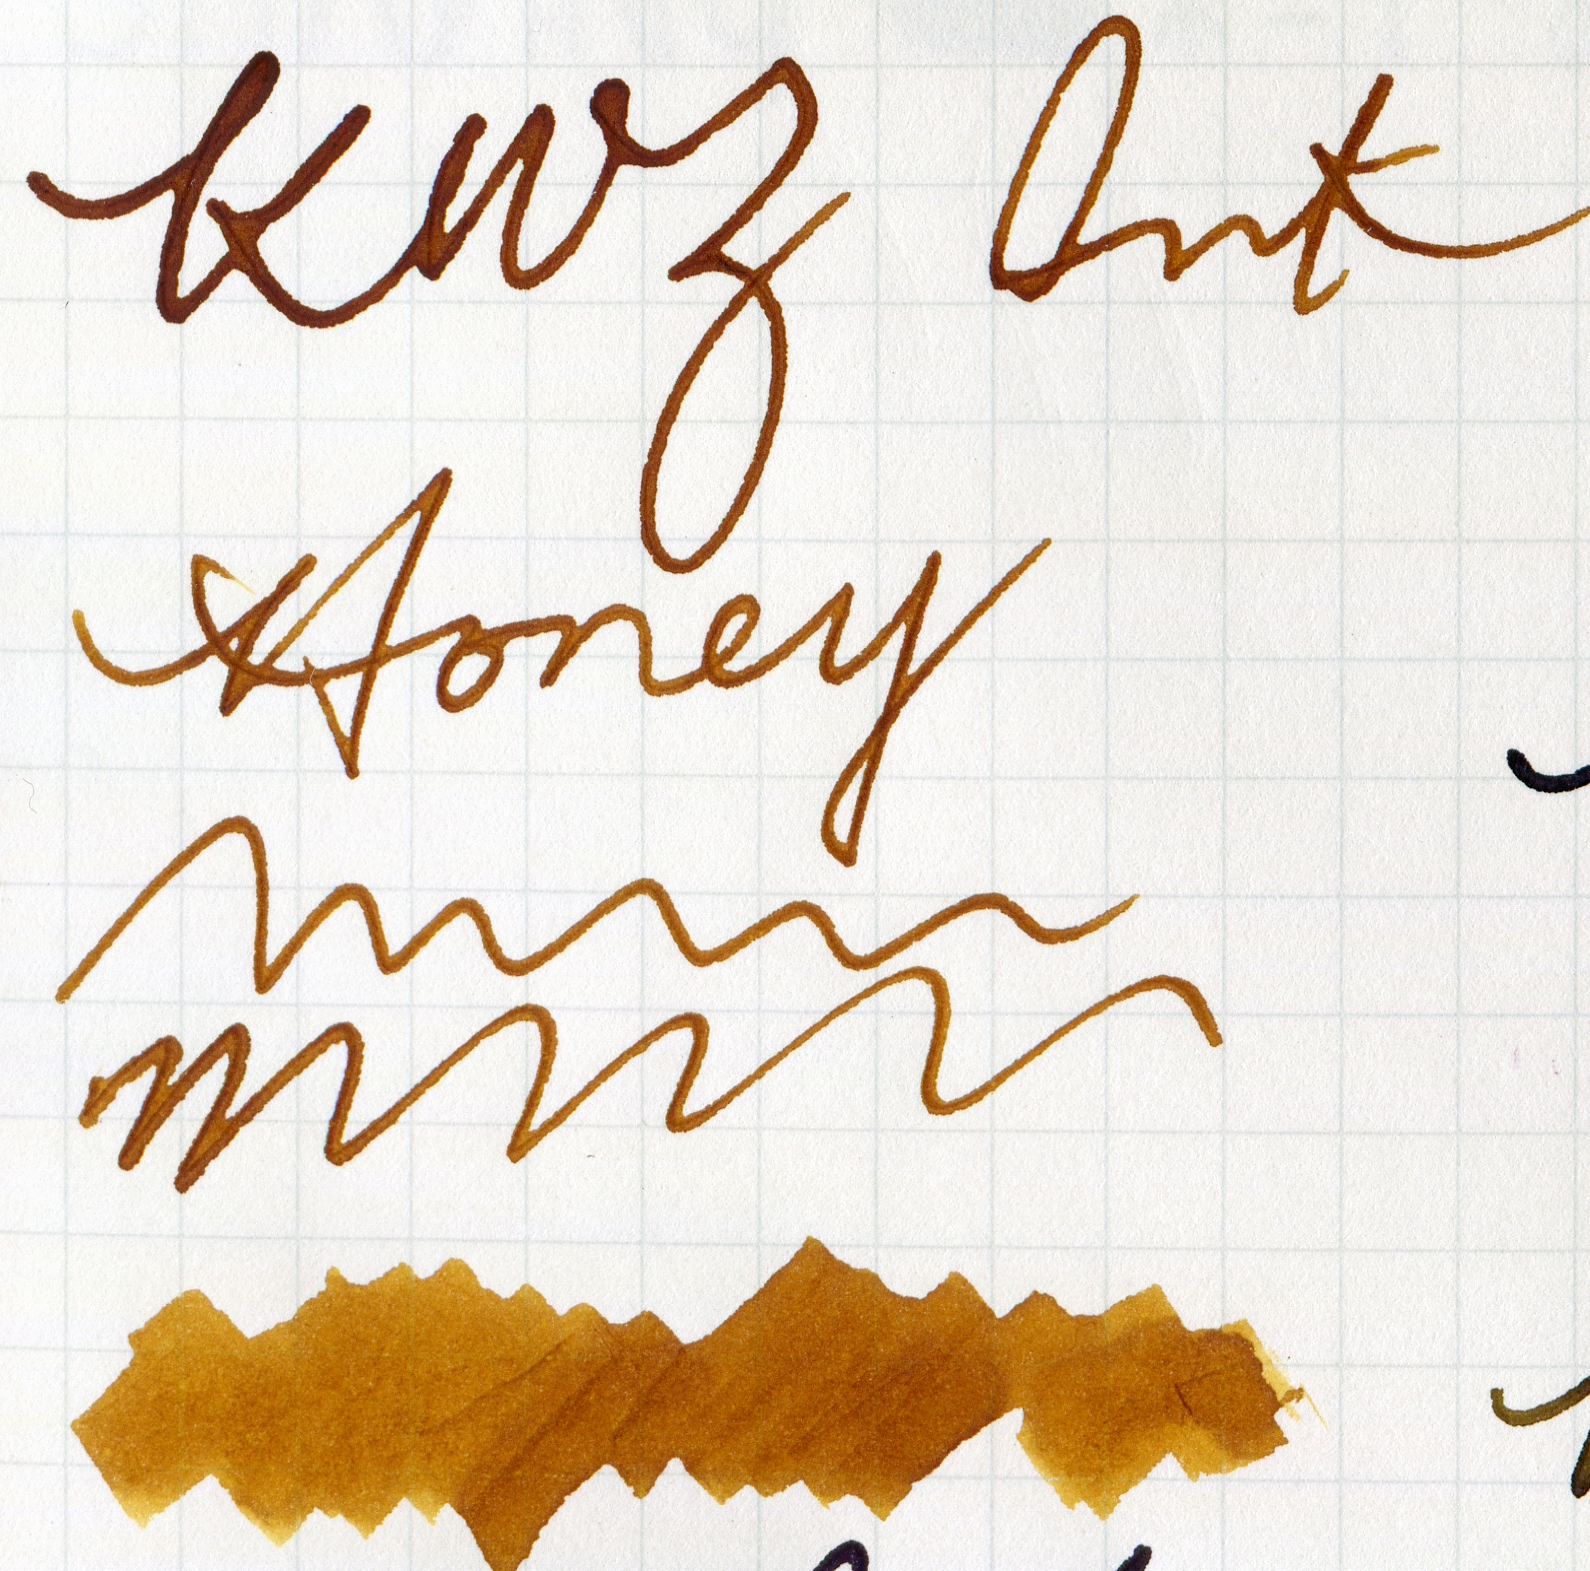 KWZ Ink
Honey